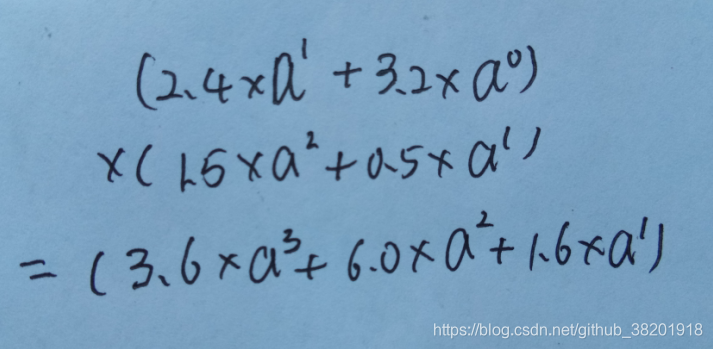 (2.4×a¹ + 3.2×a⁰)
×(1.5×a²+0.5×a¹)
=(3.6×a³+6.0×a²+1.6×a¹)
https://blog.csdn.net/github_38201918